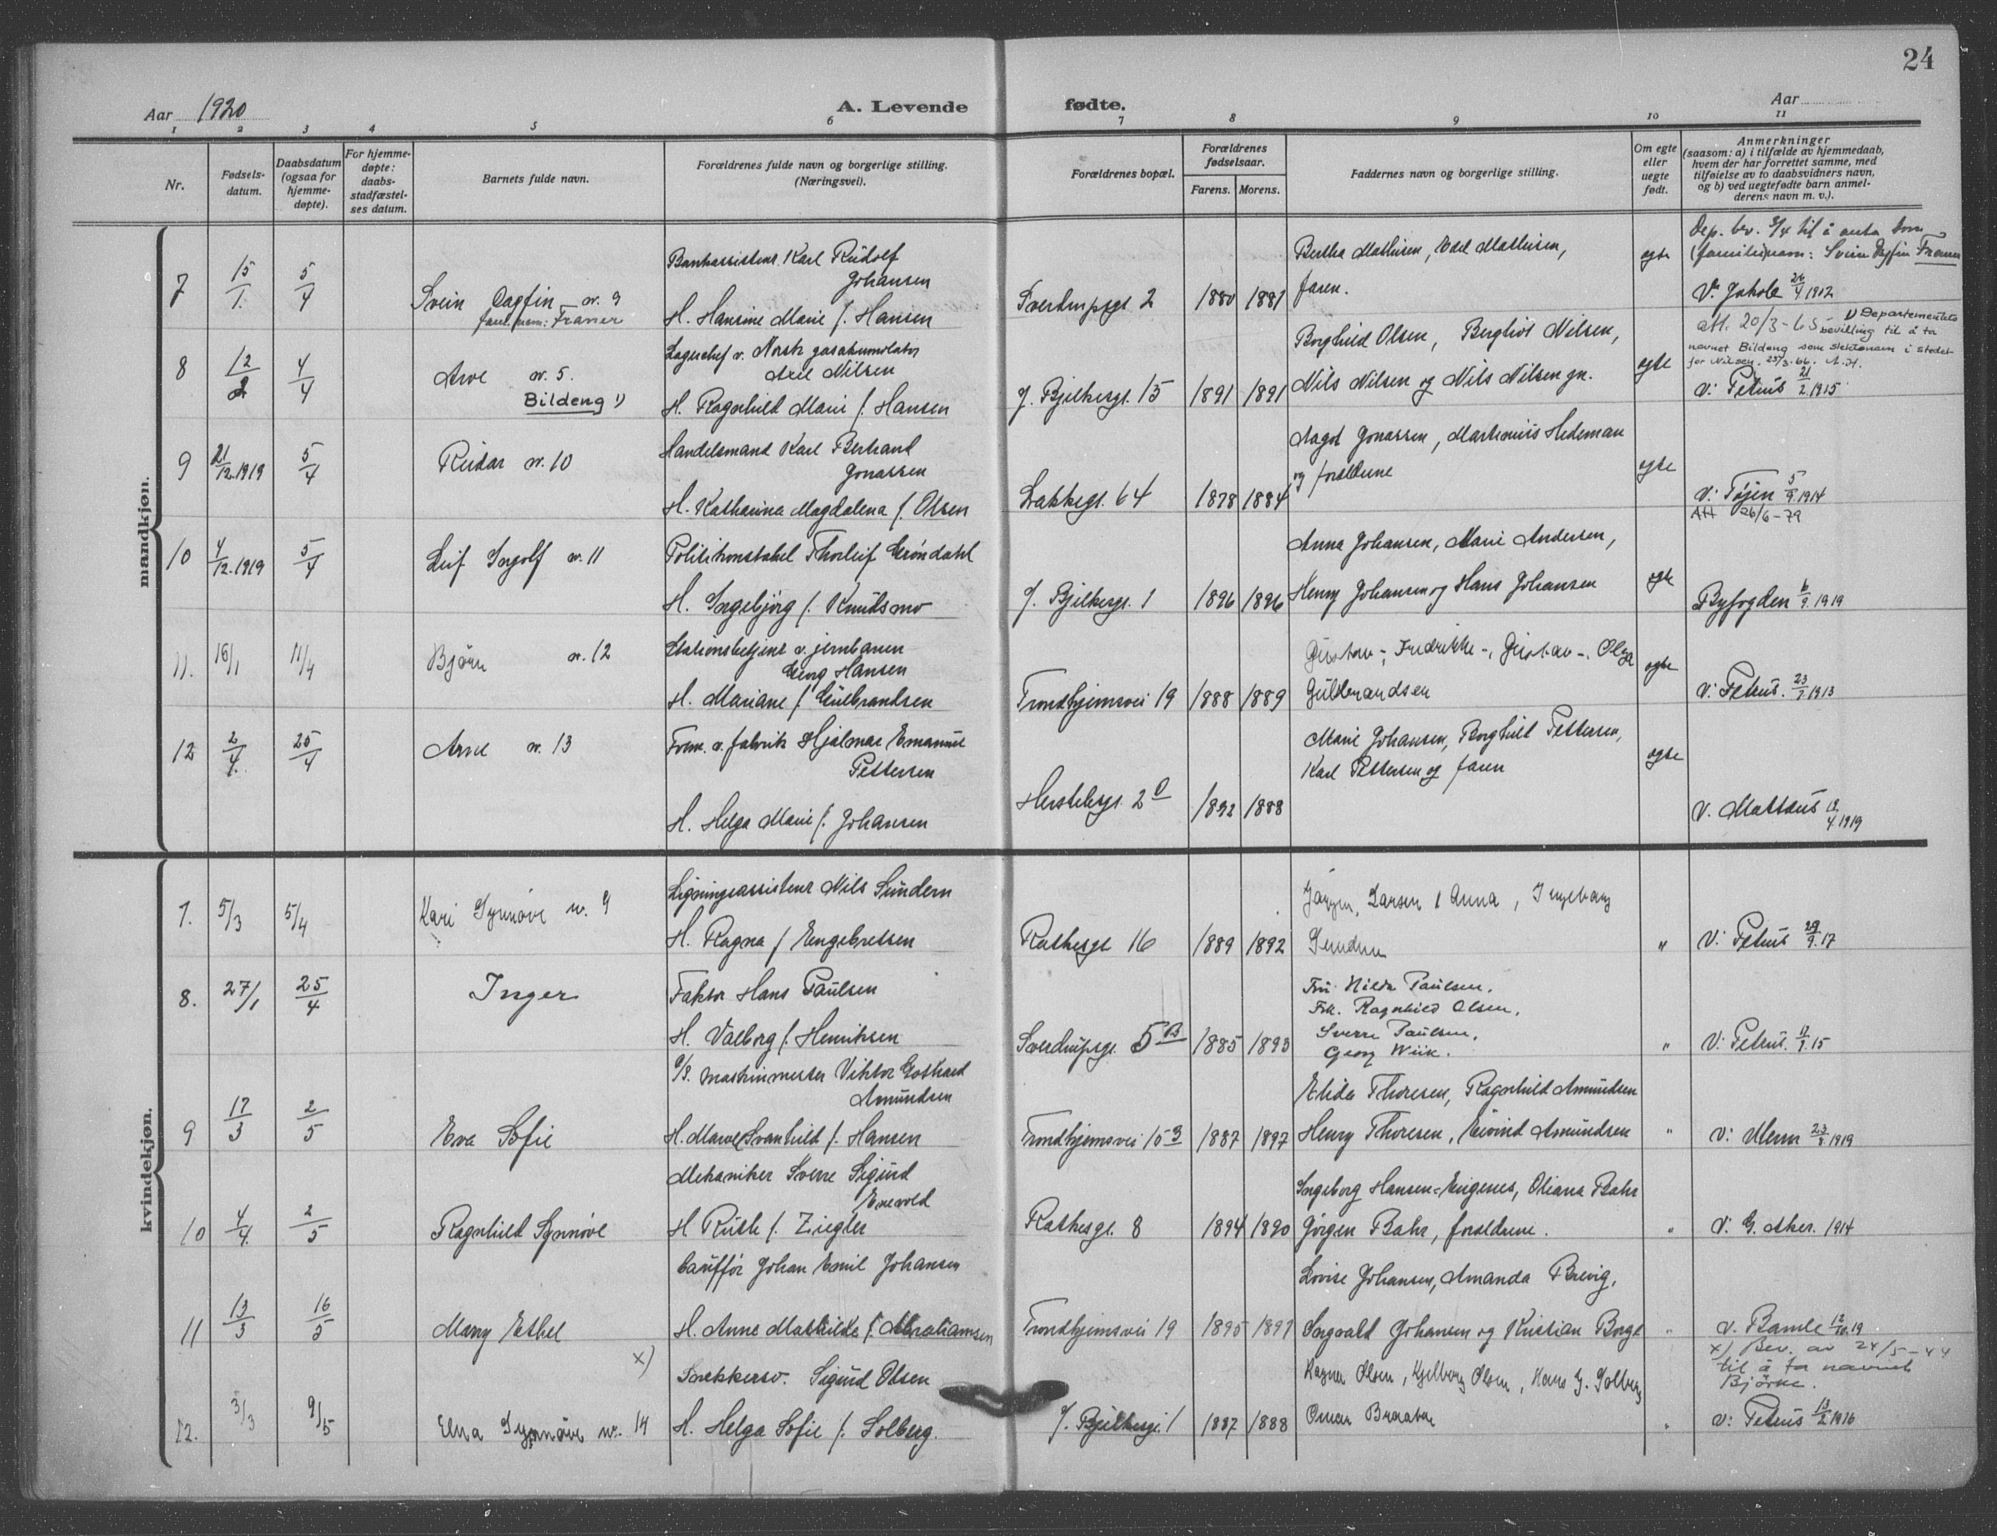 24
Aar 1920
A. Levende fødte.
Aar
1 2 3 4 5 6 7 8 9 10 11
Nr.
Fødsels-
datum.
Daabsdatum
(ogsaa for
hjemme-
døpte).
For hjemme-
døpte:
daabs-
stadfæstel-
ses datum.
Barnets fulde navn.
Forældrenes fulde navn og borgerlige stilling.
(Næringsvei).
Forældrenes bopæl.
Forældrenes
fødselsaar.
Farens. Morens.
Faddernes navn og borgerlige stilling.
Om egte
eller
uegte
født.
Anmerkninger
(saasom: a) i tilfælde av hjemmedaab,
hvem der har forrettet samme, med
tilføielse av to daabsvidners navn,
og b) ved uegtefødte barn anmel-
derens navn m. v.).
mandkjøn.
7 15/1. 5/4 Svein Dagfin nr. 9
Bankassistent Karl Rudolf
Johansen
H. Hansine Marie f. Hansen
Sverdrupsgt. 2 1880 1881
Bertha Mathisen, Karl Mathisen,
faren.
egte
Dep. bev. til å anta som
(familie)navn: Svein Dagfin
V. Jakob 26/4 1912
8 12/2 4/4 Arve nr. 5.
Bildeng 1)
Lagerchef v. Norsk gasakumulator
Axel Nilsen
H. Ragnhild Marie f. Hansen
J. Bjelkesgt. 15 1891 1891
Borghild Olsen, Bergliot Nilsen,
Nils Nilsen og Nils Nilsen jn.
egte
att. 20/3-65 1) Departementets
bevilling til å ta
navnet Bildeng som slektsnavn i stedet
for Nilsen, 23/3.66.
V: Petrus 21/2 1915
9 21/12.1919 5/4 Reidar nr. 10
Handelsmand Karl Bertrand
Jonassen
H. Katharina Magdalena f. Olsen
Lakkegt. 64 1878 1884
Aagot Jonassen, Hedeman
og forældrene
egte
V: Tøjen 5/9 1914
Att 26/6-79
10 4/12.1919 5/4 Leif Ingolf nr. 11
Politikonstabel Thorleif Grøndahl
H. Ingebjørg f. Knutsmo
J. Bjelkesgt. 1 1896 1896
Anna Johansen, Marie Andersen,
Henry Johansen og Hans Johansen
egte
Byfogden 6/9 1919
11. 16/1 11/4 Bjørn nr. 12
Stationsbetjent v. jernbanen
Georg Hansen
H. Mariane f. Gulbrandsen
Trondhjemsvei 19 1888 1889
Gustav -, Fredrikke -, Gustav -, Olga
Guldbrandsen
egte
V: Petrus. 23/ 1913
12 2/4. 25/4 Arne nr. 13
Form. v. fabrik Hjalmar Emanuel
Pettersen
H. Helga Marie f. Johansen
Herslebsgt. 2 1892 1888
Marie Johansen, Borghild Pettersen,
Karl Pettersen og faren
egte
V. Mattæus /4 1919
kvindekjøn.
7. 5/3 5/4 Kari Synnøve nr. 9
Ligningsassistent Nils Sundem
H. Ragna f. Engebretsen
Rathkesgt. 16 1889 1892
Larsen, Anna, Ingeborg
Sundem
"
V: Petrus 29/9.17
8. 27/1 25/4 Inger
Faktor Hans Paulsen
H. Valborg f. Henriksen
Sverdrupsgt. 5 B 1885 1893
Fru Hilda Paulsen.
Frk. Ragnhild Olsen.
Sverre Paulsen.
Georg Wiik.
"
V: Petrus. 15
9 17/3 2/5 Eva Sofie
Maskinmester Viktor Gothard
Amundsen
H. Marie Svanhild f. Hansen
Trondhjemsvei 10 1887 1897
Elida Thoresen, Ragnhild Amundsen
Henry Thoresen, Eivind Amundsen
"
V: 23/ 1919
10 4/4. 2/5 Ragnhild Synnøve
Mekaniker Sverre Sigurd
Enevold
H Ruth f. Ziegler
Rathkesgt. 8 1894 1890
Ingeborg Hansen-Eugenes, Oliana Bahr
Jørgen Bahr, forældrene.
"
V: G. Aker. 1914
11 13/3 16/5 Mary Ethel
Chauffør Johan Emil Johansen
H. Anne Mathilde f. Abrahamsen
Trondhjemsvei 19 1895 1897
Lovise Johansen, Amanda Brevig,
Ingvald Johansen og Kristian Borge
"
V. Bamle 12/10.19
x) Bev. av 24/5-44
til å ta navnet
Bjørke.
12. 3/3 9/5 Elna Synnøve nr. 14 x)
Snekkersv. Sigurd Olsen
H. Helga Sofie f. Solberg.
J. Bjelkesgt. 1 1887 1888
Ragna Olsen, Olsen, Hans G. Solberg
Omar Braaten
"
V: Petrus 13/2 1916